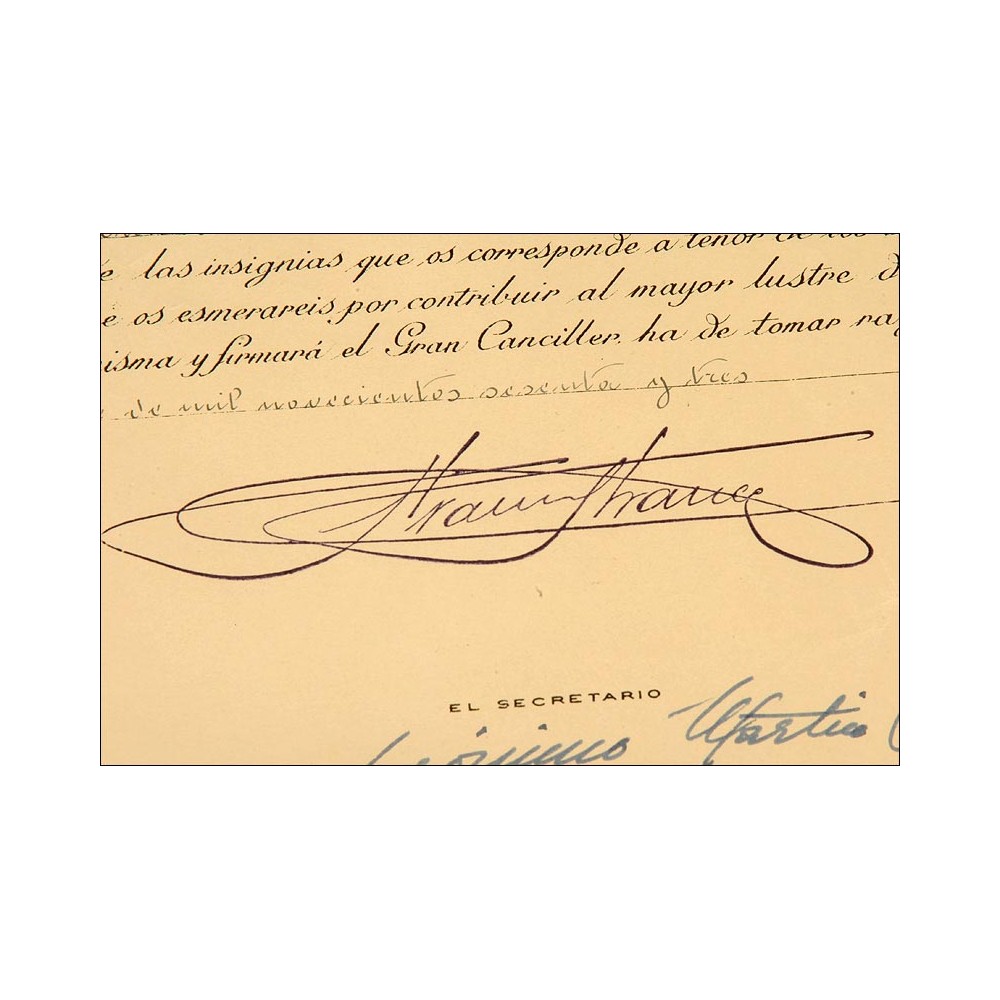 e las insignias que os corresponde a tenor de los
e os esmerareis por contribuir al mayor lustre d
isma y firmará el Gran Canciller, ha de tomar ra
de mil novecientos sesenta y tres
EL SECRETARIO
Martin